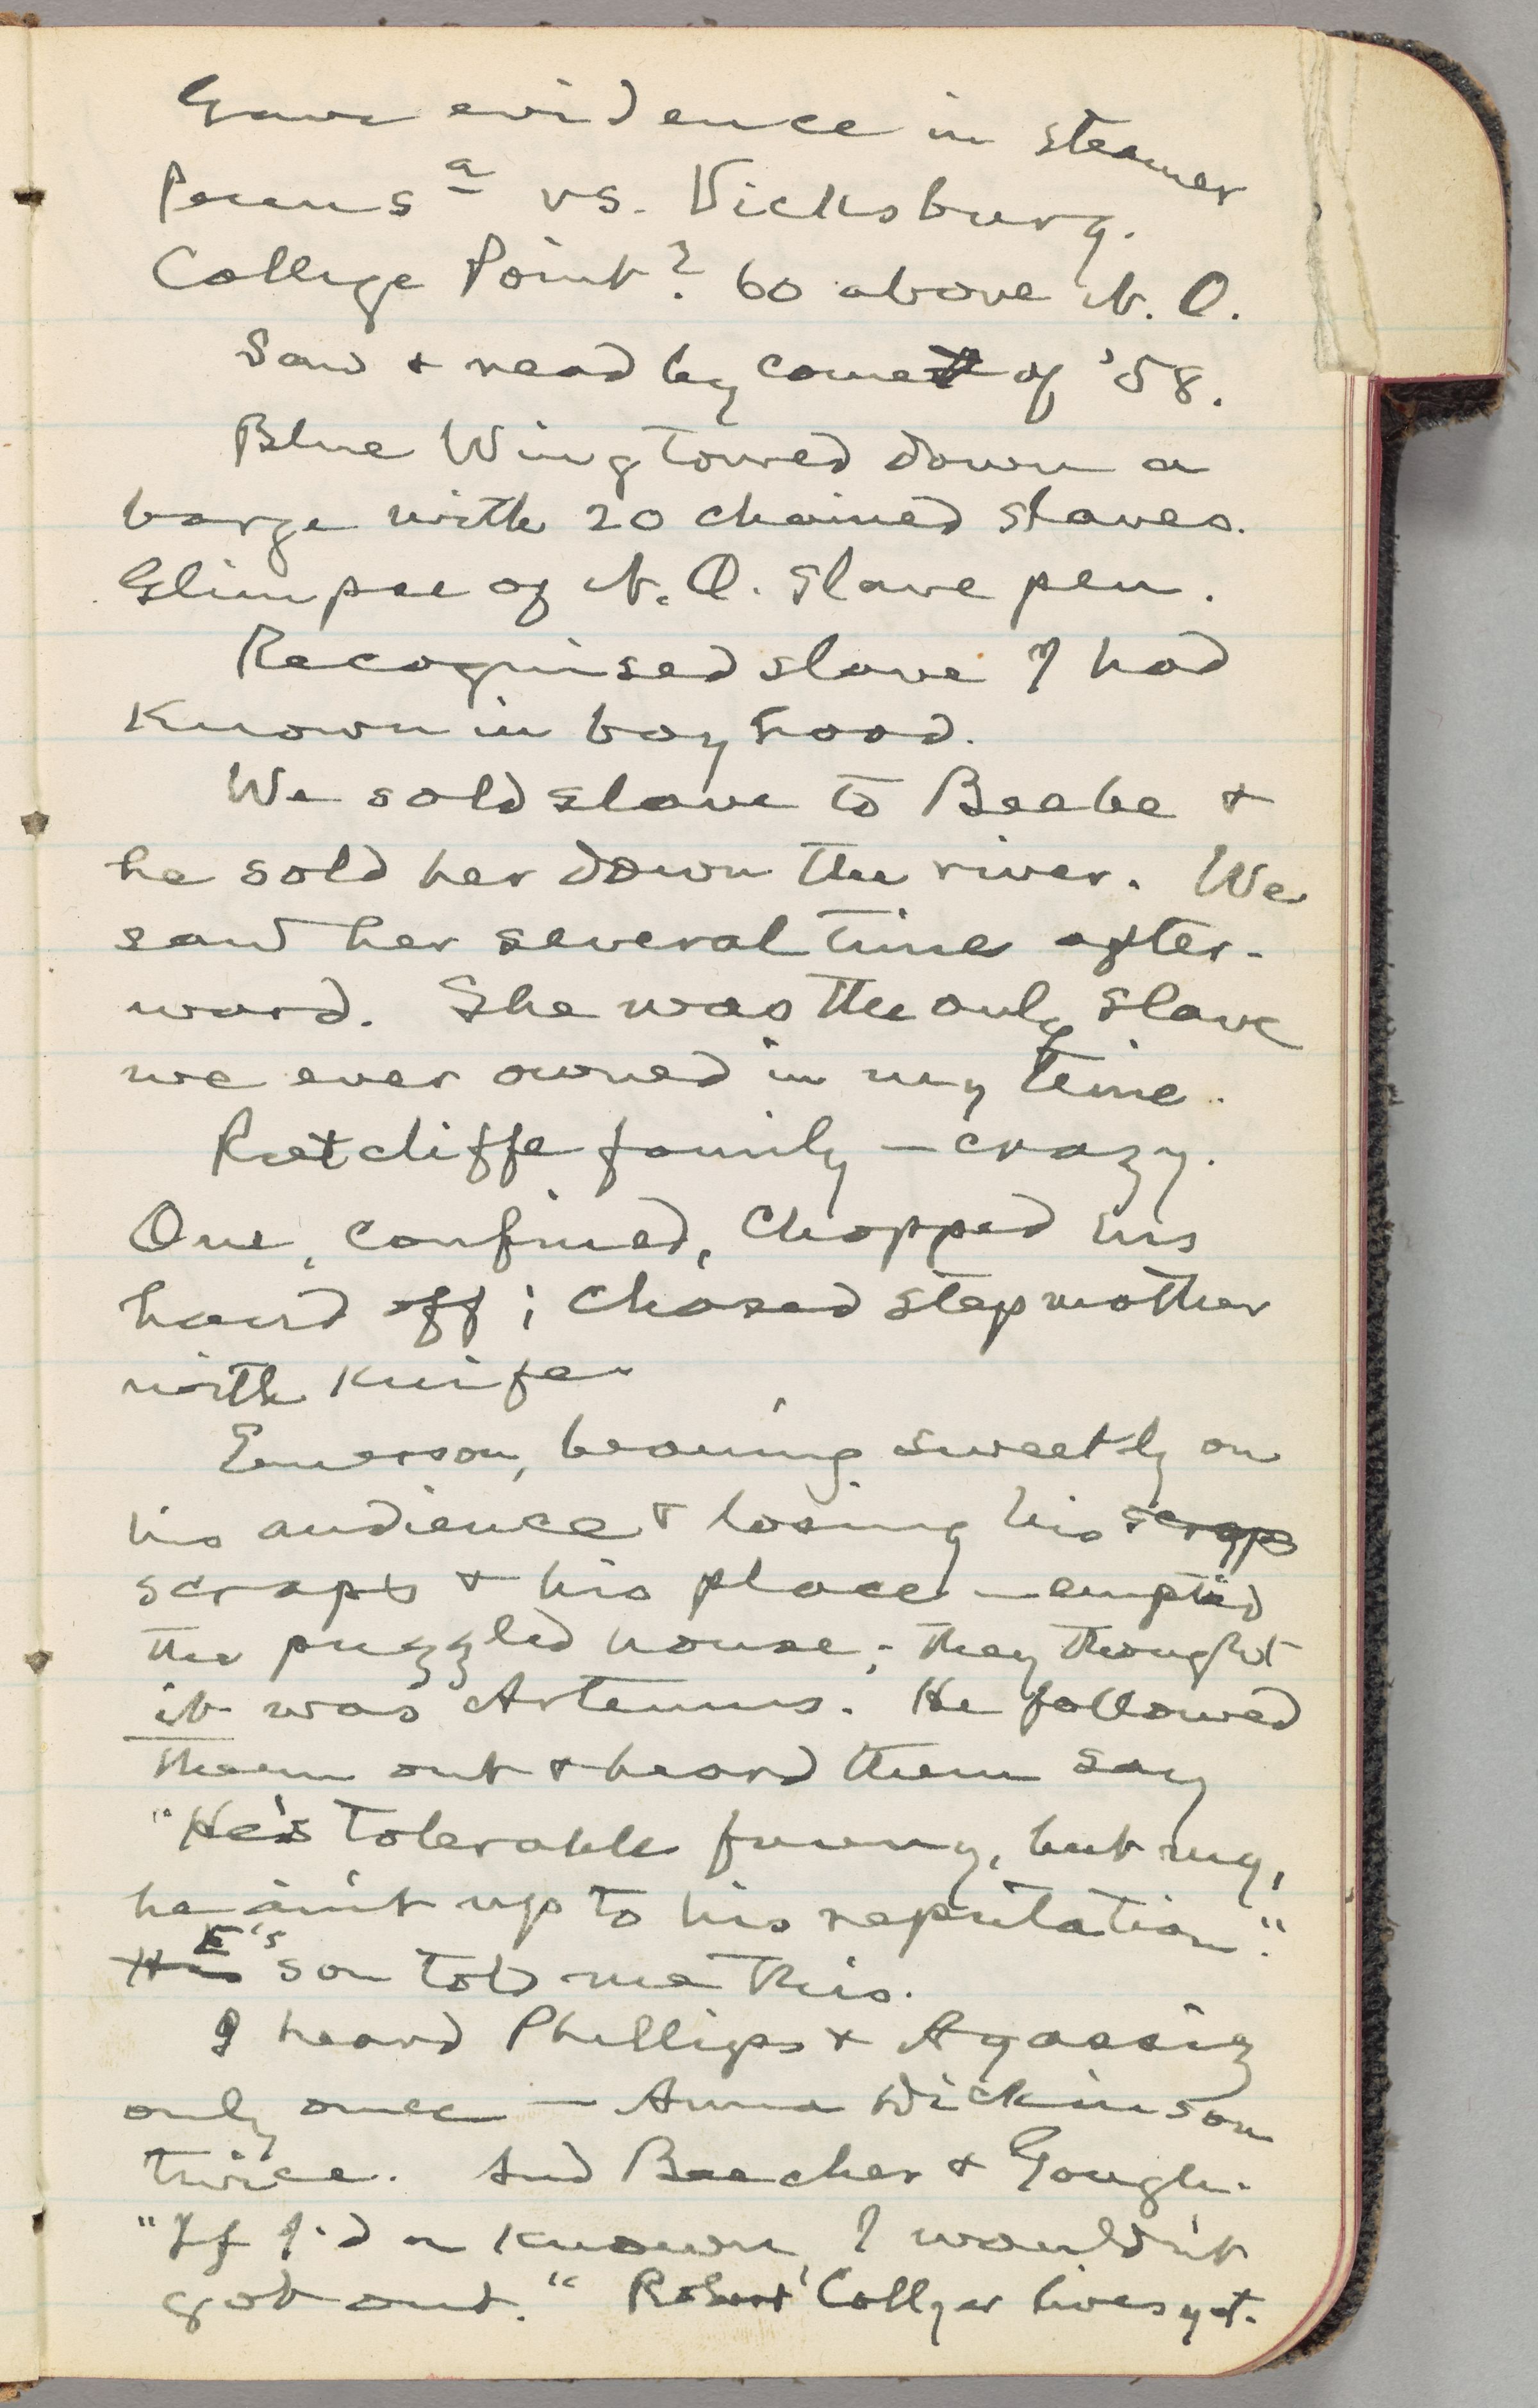 Gave evidence in steamer
Pennsa vs. Vicksburg.
College Point? 60 above N. O.
Saw & read by comet of '58.
Blue Wing towed down a
barge with 20 chained slaves.
Glimpse of N. O. slave pen.
Recognised slave I had
known in boyhood.
We sold slave to Beebe &
he sold her down the river. We
saw her several time after-
ward. She was the only slave
we ever owned in my time.
Ratcliffe family — crazy.
One, confined, chopped his
hand off; chased stepmother
with knife.
Emerson, beaming sweetly on
his audience & losing his scraps
scraps & his place — emptied
the puzzled house; they thought
it was Artemus. He followed
them out & heard them say
"He's tolerable funny, but my,
he ain't up to his reputation."
His E's son told me this.
I heard Phillips & Agassiz
only once — Anna Dickinson
twice. And Beecher & Gough.
"If I'd a known, I wouldn't
got out." Robert Collyer lives yet.